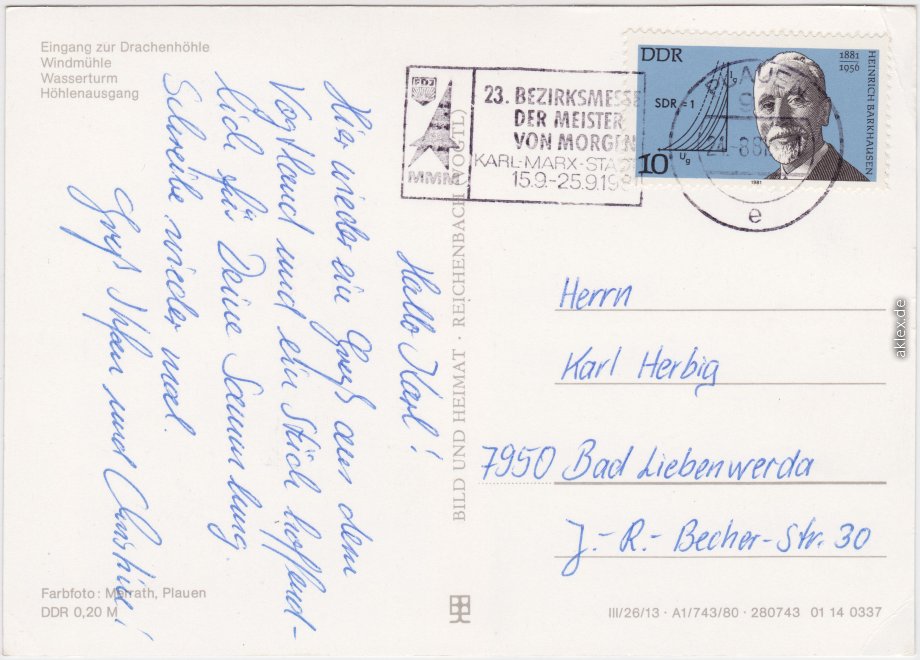 Eingang zur Drachenhöhle
Windmühle
Wasserturm
Höhlenausgang
Hallo Karl!
Hier wieder ein Gruß aus dem
Vogtland und ein Stück hoffend-
lich für Deine Sammlung.
Schreibe wieder mal.
Gruß und Christine!
Farbfoto: Meinrath, Plauen
DDR 0,20 M
BILD UND HEIMAT · REICHENBACH (VOGTL)
FDJ
MMM
23. BEZIRKSMESSE
DER MEISTER
VON MORGEN
KARL-MARX-STADT
15.9.-25.9.1981
PLAUEN
9
e
DDR
1881
1956
HEINRICH BARKHAUSEN
SDR = 1
Ig
Ug
10
1981
Herrn
Karl Herbig
7950 Bad Liebenwerda
J.-R.-Becher-Str. 30
III/26/13 · A1/743/80 · 280743 01 14 0337
aklex.de